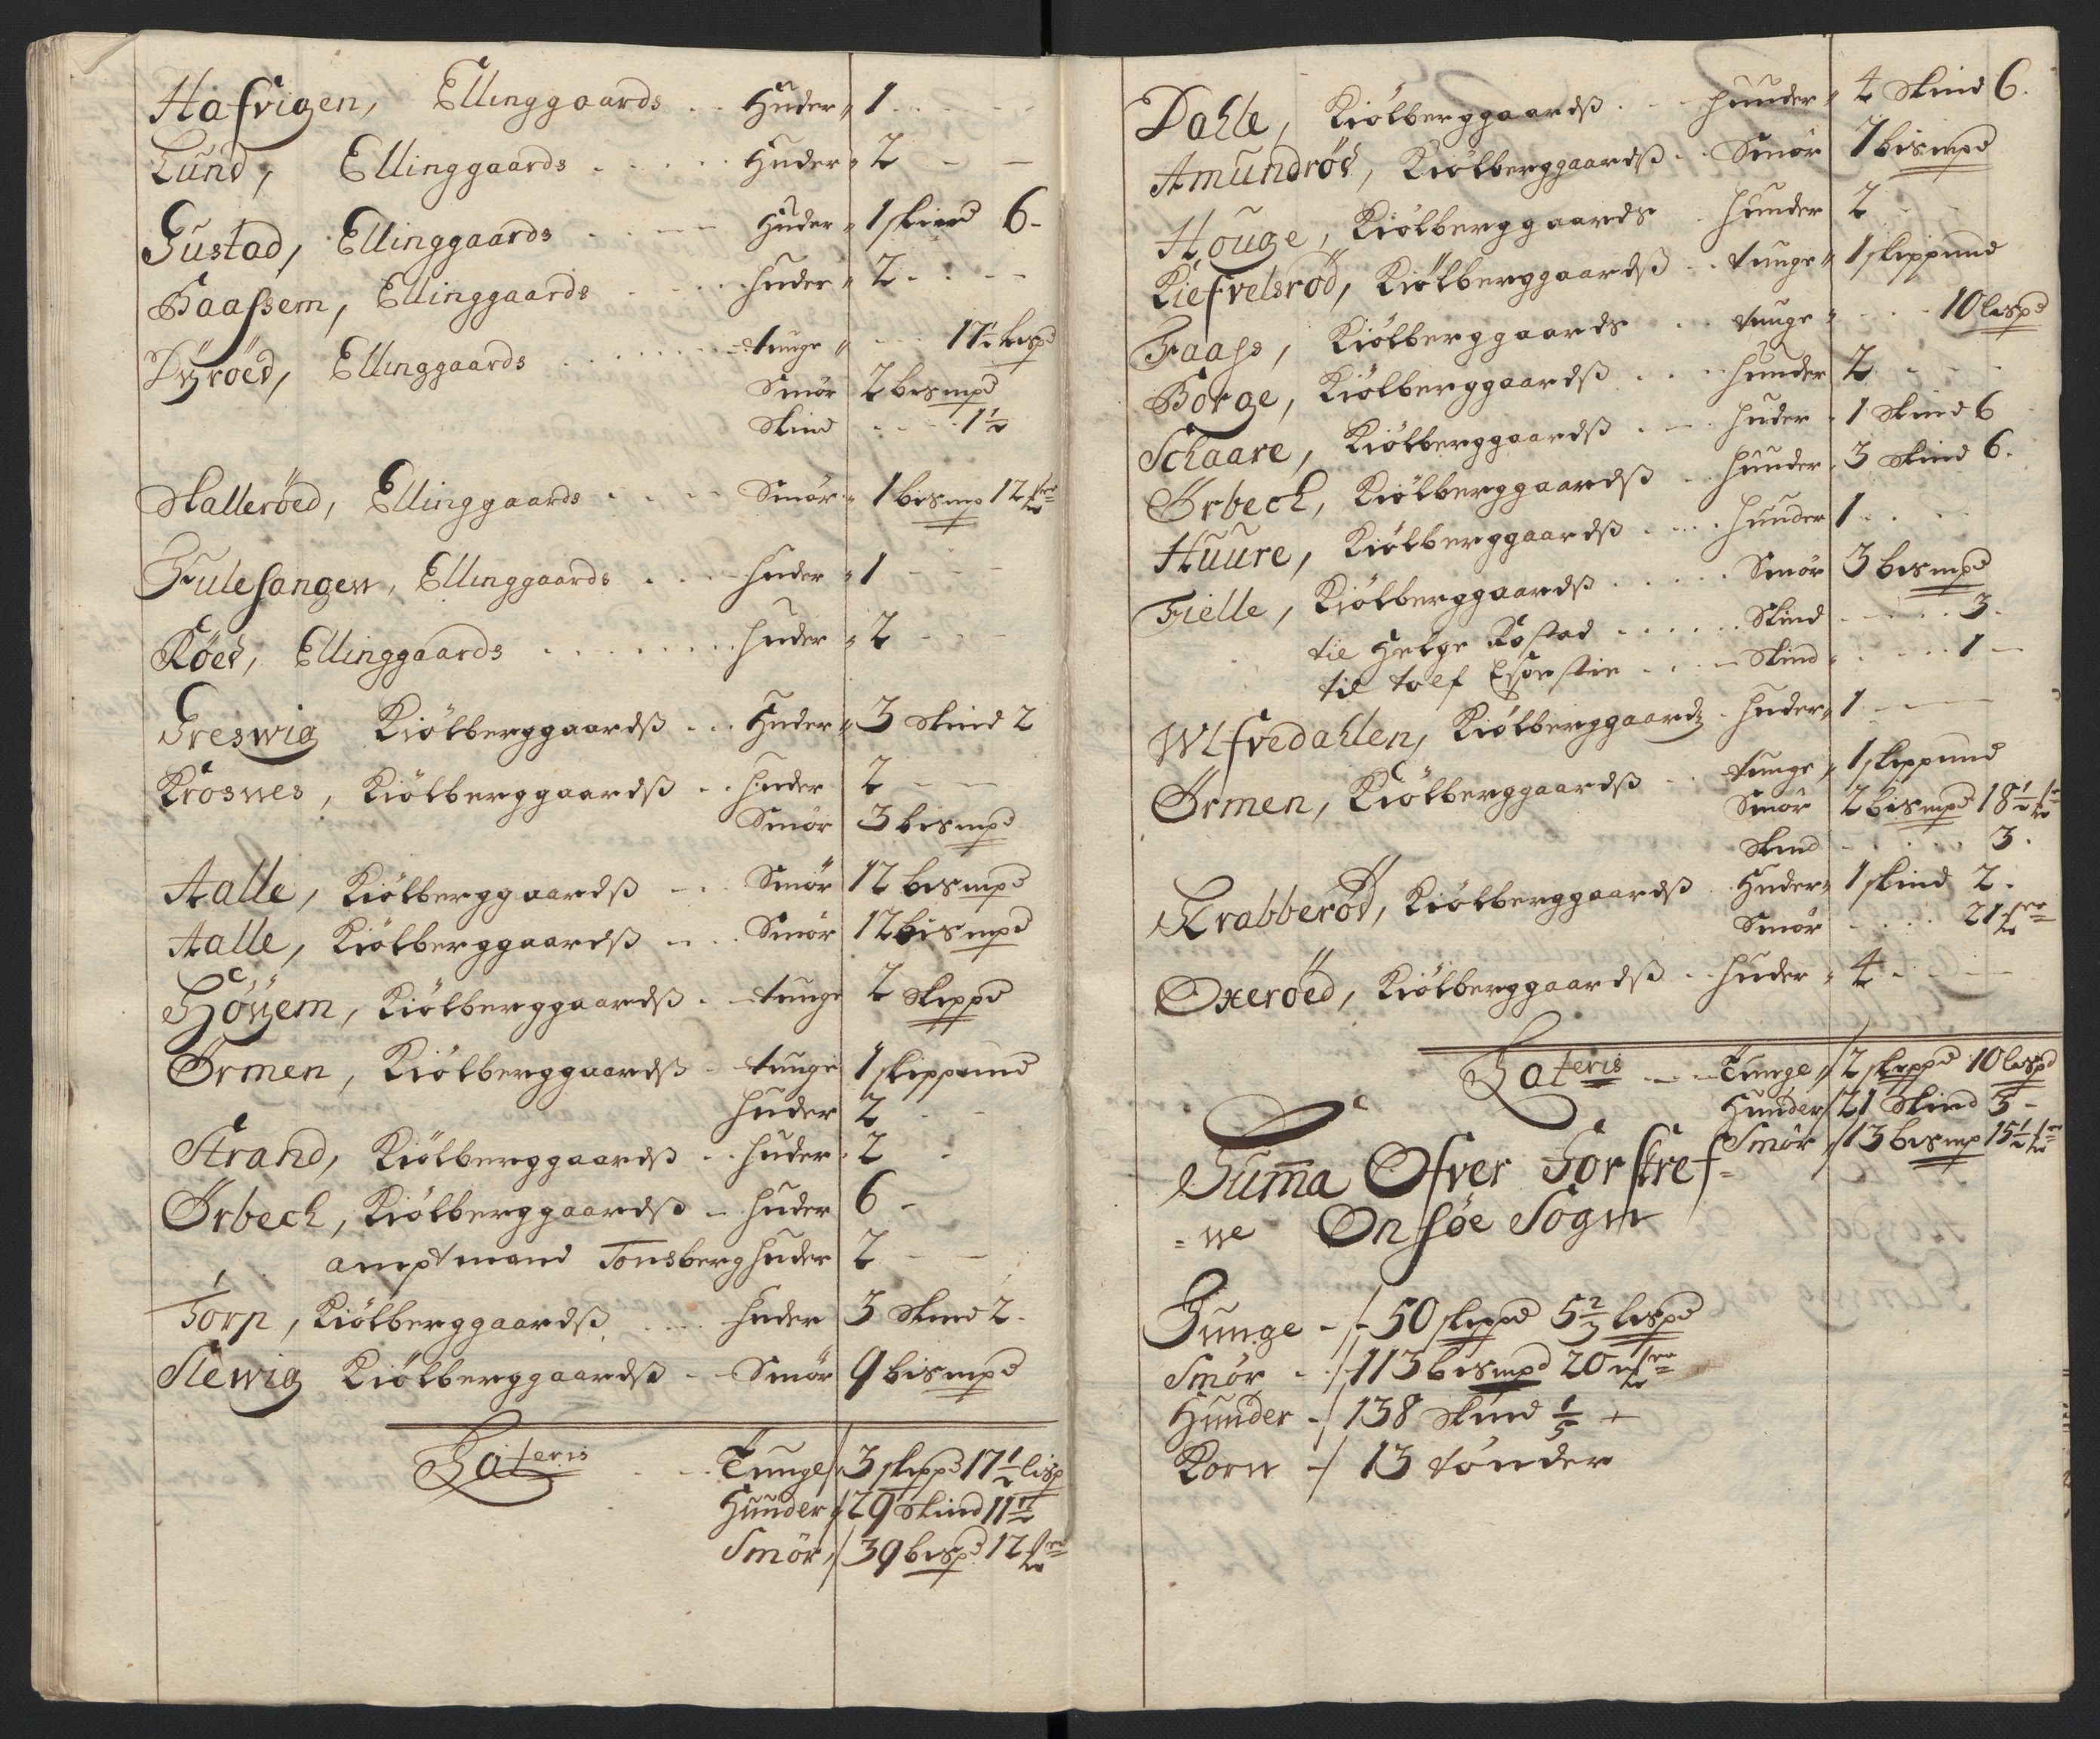 Hafvigen, Ellinggaards .. Huder 1
Lund, Ellinggaards ..... Huder 2 – –
Gustad, Ellinggaards .... Huder 1 skind 6 -
Haaßem, Ellinggaards .... huder 2
Dÿröed, Ellinggaards ....... tunge 17½ lispd
Smör 2 bismpd
Skind 1½
Halleröed, Ellinggaards .... Smör 1 bismp 12
Fulesangen, Ellinggaards ... huder 1
Röed, Ellinggaards ........ huder 2
Greswig Kiölberggaardß ... Huder 3 Skind 2
Krosnes, Kiölberggaardß .. huder 2
Smör 3 bismpd
Aalle, Kiölberggaardß – .. Smör 12 bismpd
Aalle, Kiölberggaardß ... Smör 12 bismpd
Höÿem, Kiölberggaardß . – tunge 2 Skippd
Ørmen, Kiölberggaardß – tunge 1 skippund
huder 2
Strand, Kiölberggaardß .. huder 2
Ørbech, Kiölberggaardß – huder 6 -
amptmand Tonsberg huder 2 – –
Torp, Kiölberggaardß .... huder 3 Skind 2 -
Slewig Kiölberggaardß .. Smör 9 bismpd
Lateris ... Tunge 3 skippd 17½ lisp
Hunder 29 Skind 11½
Smör 39 bispd 12
Dahle, Kiölberggaardß . – – hunder 4 Skind 6.
Amundröd, Kiölberggaardß .. Smör 1 bismpd
Houge, Kiölberggaards . hunder 2
Kiefvelsröd, Kiölberggaardß .. tunge 1 skippund
Faaße, Kiölberggaards ... tunge 10 lispd
Borge, Kiölberggaardß .... hunder 2
Schaare, Kiölberggaardß ... huder 1 Skind 6
Ørbech, Kiölberggaardß .. hunder 3 Skind 6.
Huure, Kiölberggaardß .... hunder 1
Fielle, Kiölberggaardß ..... Smör 3 bismpd
til Helge Rostad ...... Skind 3.
til tolf ... – Skind 1 –
Wlfvedahlen, Kiölberggaardz . huder 1
Ørmen, Kiölberggaardß .. tunge 1 skippund
Smör 2 bismpd 18½
Skind 3.
Krabberöd, Kiölberggaardß . Huder 1 skind 2.
Smör 21
Oxeröed, Kiölberggaardß .. huder 4
Lateris ... Tunge 2 skippd 10 lispd
Hunder 21 Skind 3 -
Smör 13 bismp 15½
Suma Ofver Forskref=
=ne Onsöe Sogn
Tunge - 50 skippd 5⅔ lispd
Smör .. 113 bismpd 20
Hunder - 138 Skind
Korn - 13 tönder